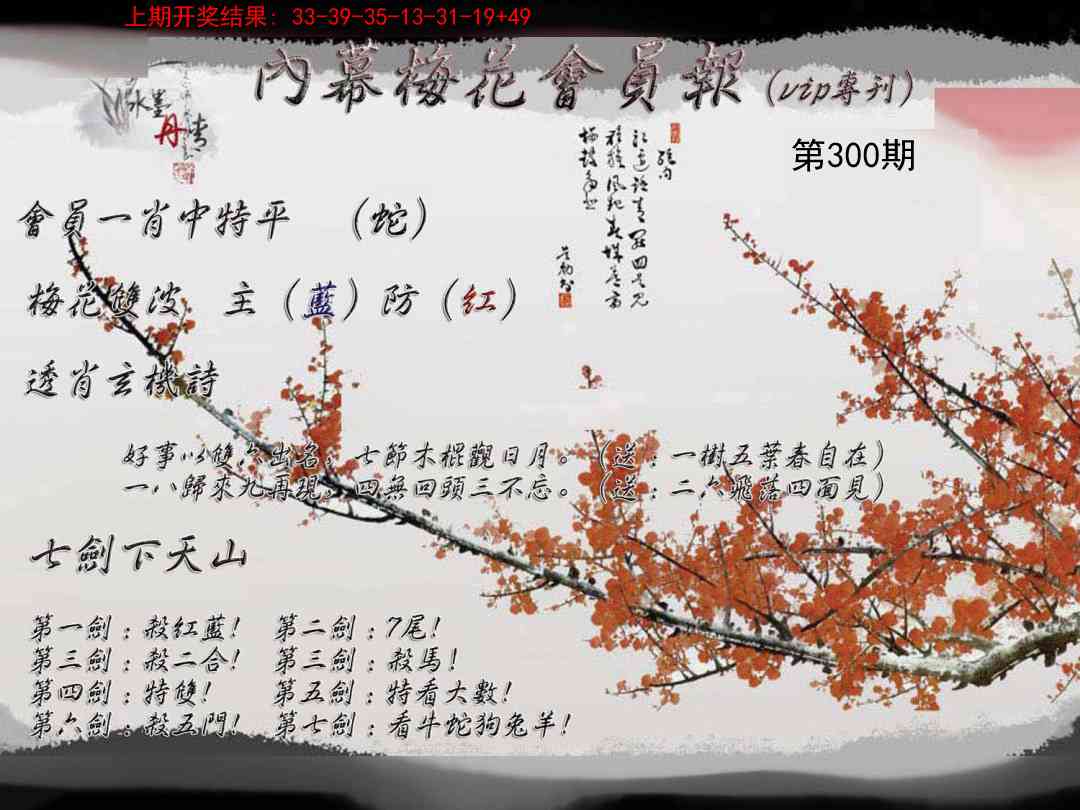 上期开奖结果: 33-39-35-13-31-19+49
內幕梅花會員報(vip專刊)
水墨
丹青
第300期
會員一肖中特平 (蛇)
梅花雙波 主(藍)防(紅)
透肖玄機詩
好事以雙六出名，七節木棍觀日月。(送：一樹五葉春自在)
一八歸來九再現，四無回頭三不忘。(送：二六飛落四面見)
七劍下天山
第一劍：殺紅藍! 第二劍：7尾!
第三劍：殺二合! 第三劍：殺馬!
第四劍：特雙! 第五劍：特看大數!
第六劍：殺五門! 第七劍：看牛蛇狗兔羊!